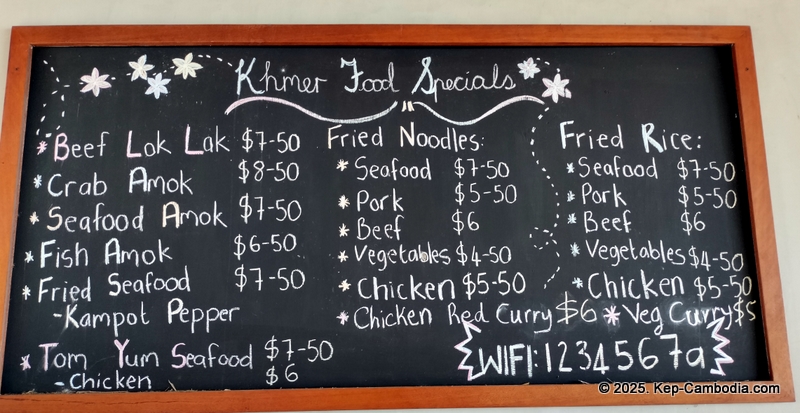 Khmer Food Specials
* Beef Lok Lak $7-50
* Crab Amok $8-50
* Seafood Amok $7-50
* Fish Amok $6-50
* Fried Seafood $7-50
-Kampot Pepper
* Tom Yum Seafood $7-50
-Chicken $6
Fried Noodles:
* Seafood $7-50
* Pork $5-50
* Beef $6
* Vegetables $4-50
* Chicken $5-50
* Chicken Red Curry $6
Fried Rice:
* Seafood $7-50
* Pork $5-50
* Beef $6
* Vegetables $4-50
* Chicken $5-50
* Veg Curry $5
WIFI: 1234567a
© 2025. Kep-Cambodia.com